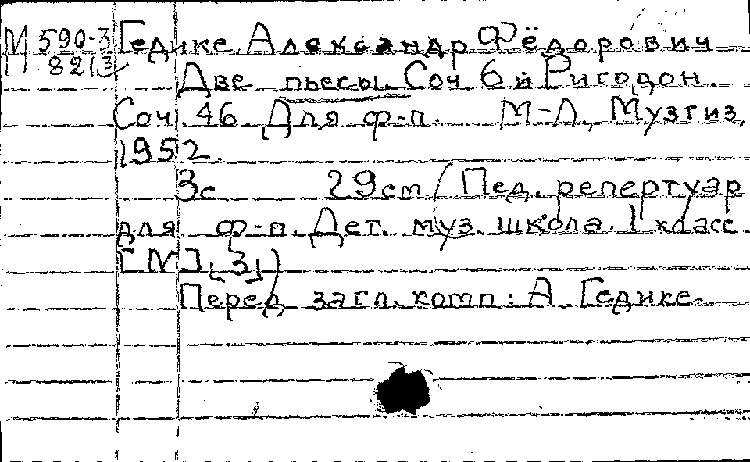 М 590-3 Гедике, Александр Фёдорович
8213 Две пьесы. Соч 6 и Ригодон.
Соч. 46. Для ф-п. М-Л, Музгиз,
1952.
3с 29cm (Пед. репертуар
для ф-п. Дет. муз. школа. 1 класс
[№], 3])
Перед загл. комп: А. Гедике.